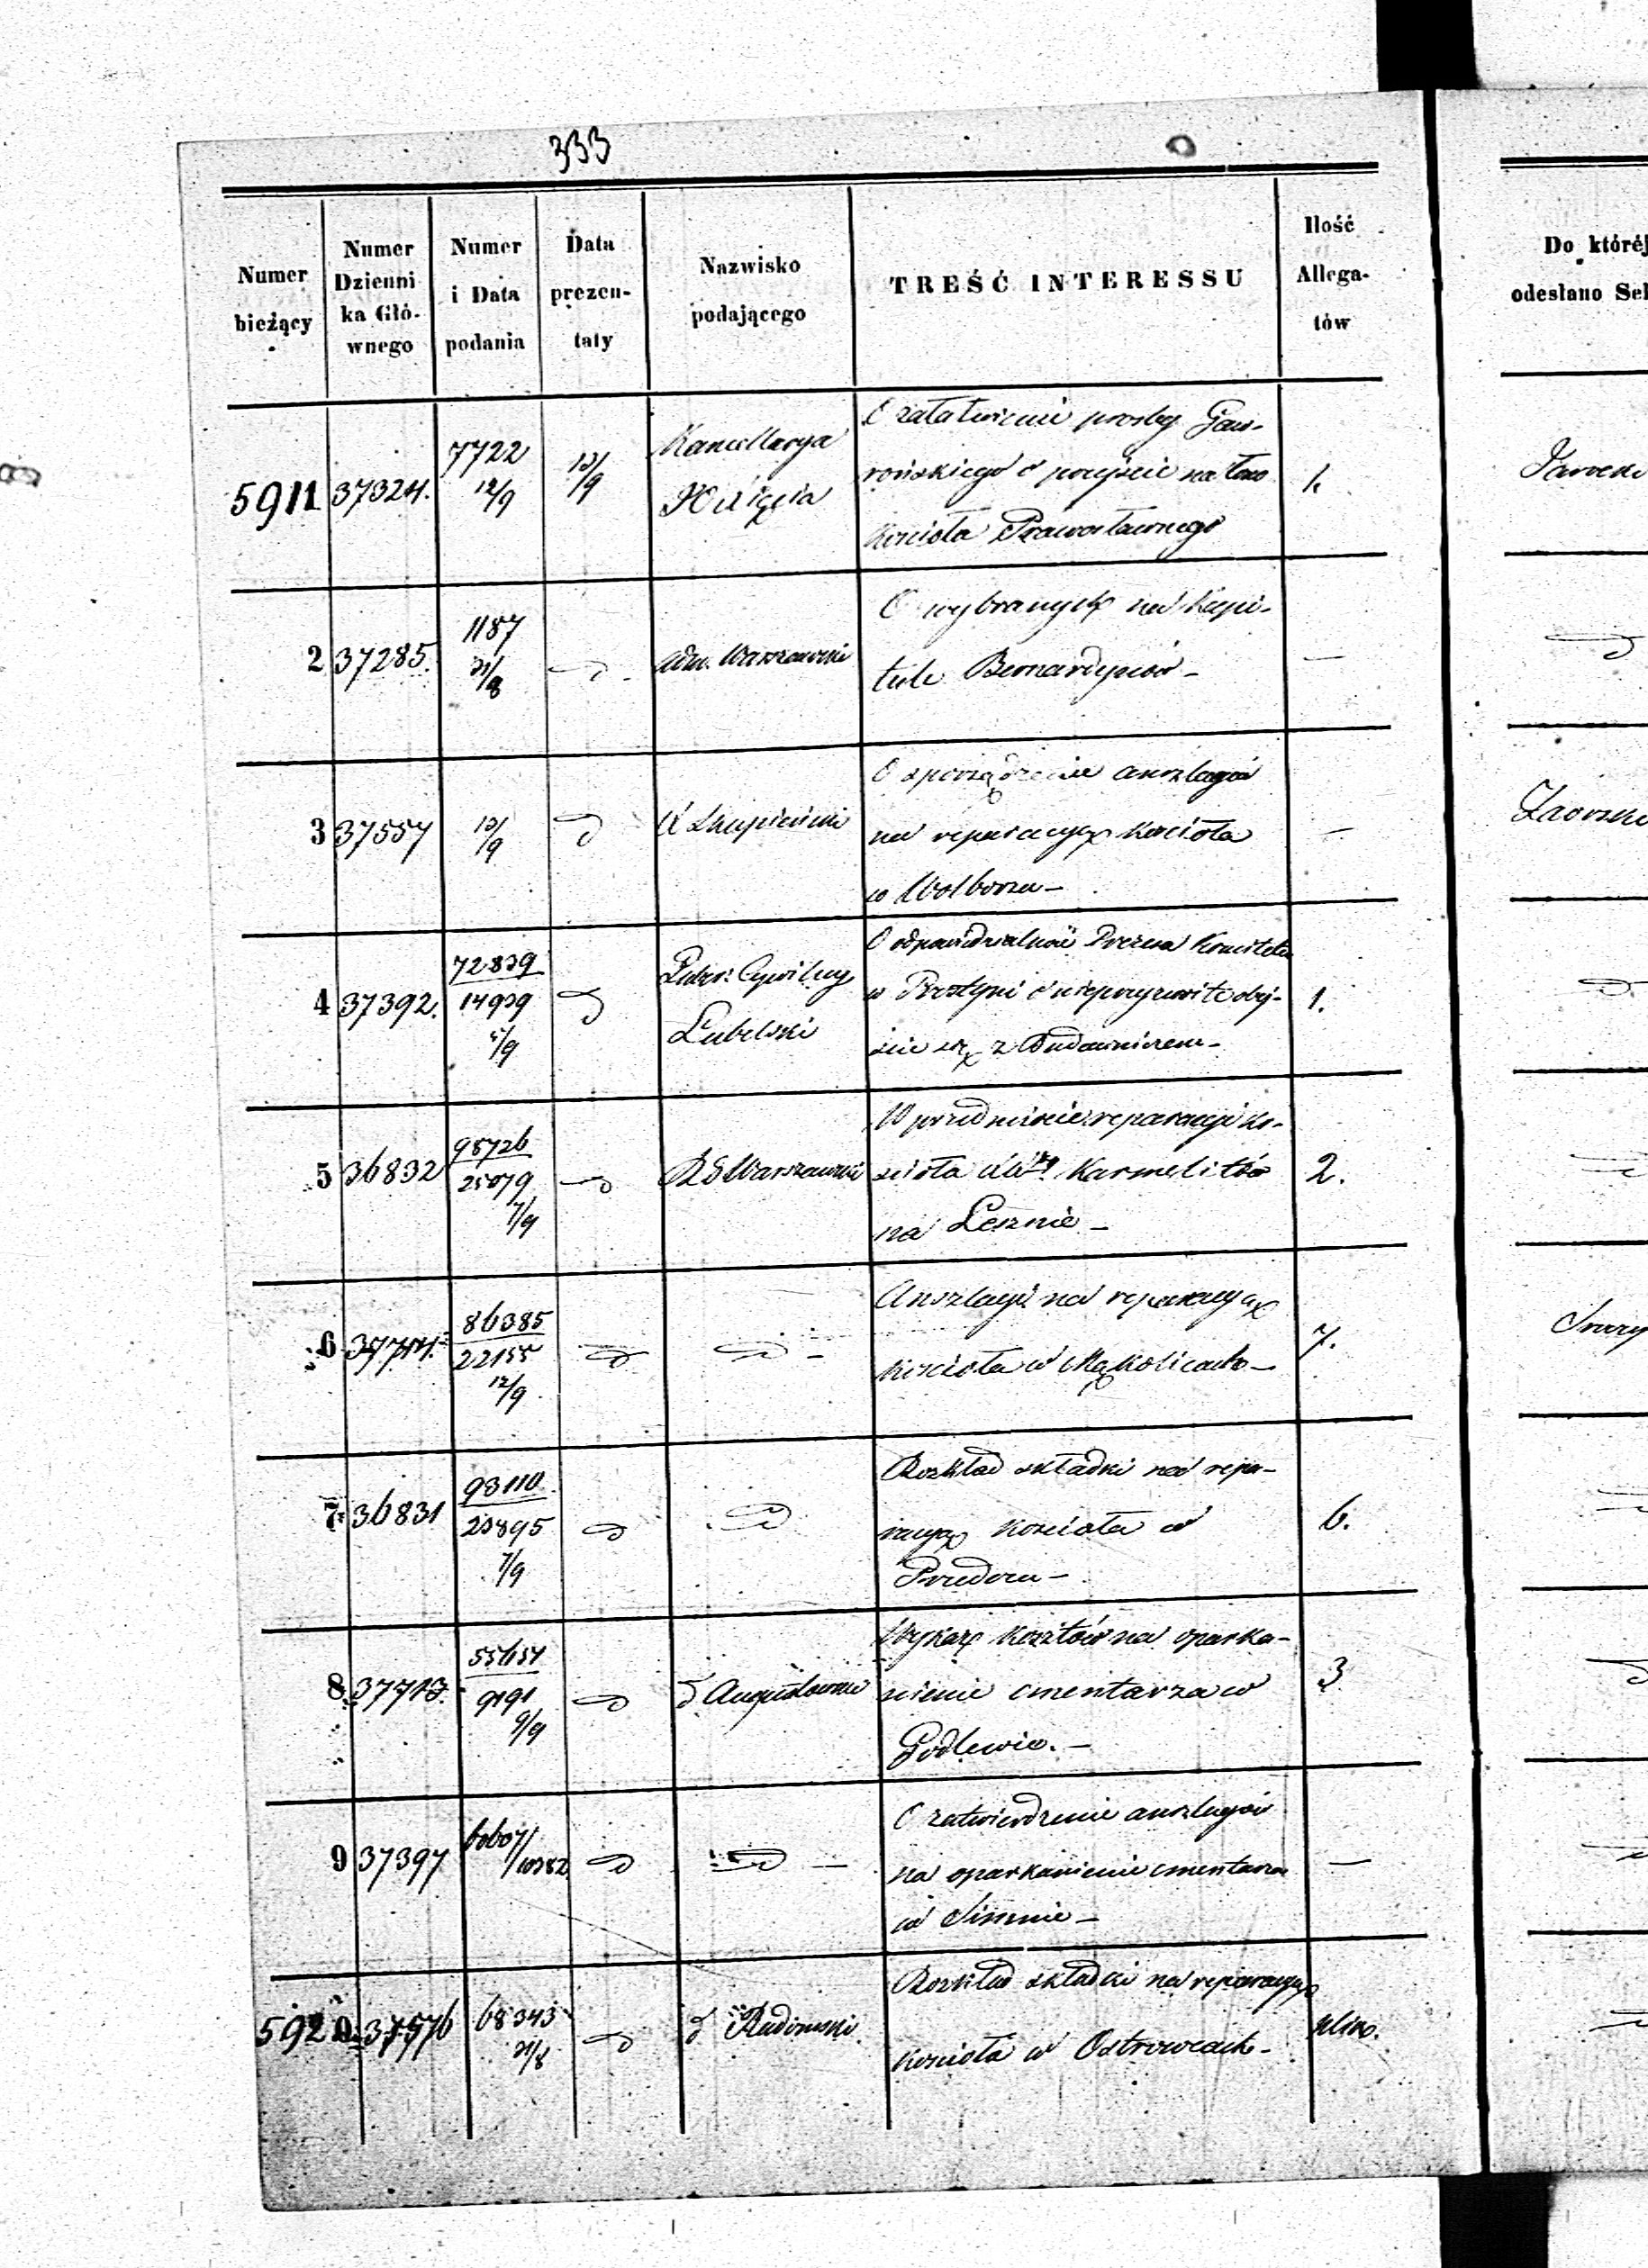 333
Numer bieżący
Numer Dzienni ka Głó- wnego
Numer i Data podania
Data prezen- taty
Nazwisko podającego
TREŚĆ INTERESSU
Ilość Allega- tów
Do któréj
odesłano
5911 37324. 7722 12/9 13/9
Kancellarya
Xcia
O załatwienie prośby Gaw-
rońskiego o przejście na łono
Kościoła Prawosławnego
1.
2 37285. 1187 31/8
Adm. Warszawski
O wybranych na Kapi-
tule Bernardynów -
—
3 37557 13/9
O sporządzenie anszlagów
na reparacyą Kościoła
w Wolborzu -
—
4 37392. 72839 14939 5/9
Gubr: Cywilny
Lubelski
O odpowiedzialność Prezesa Komitetu
w o nieprzyzwoite obej-
ście się z Budowniczem -
1.
5 36832 98726 25079 7/9
R G Warszawski
W przedmiocie reparacyi Ko-
ścioła Karmelitów
na Lesznie -
2.
6 37714. 86385 22155 12/9
Anszlagi na reparacyą
Kościoła w Mąkolicach -
7.
7 36831 93110 23895 7/9
Rozkład składki na repa-
racyą Kościoła w
6.
8 37713. 55654 9191 9/9
d Augustowski
Wykaz kosztów na oparka-
nienie cmentarza w
Godlewie. -
3
9 37397 60607/10382
O zatwierdzenie anszlagów
na oparkanienie cmentarza
w Simnie -
—
5920. 37576 68343 31/8
d Radomski
Rozkład składki na reparacyą
Kościoła w Ostrowcach -